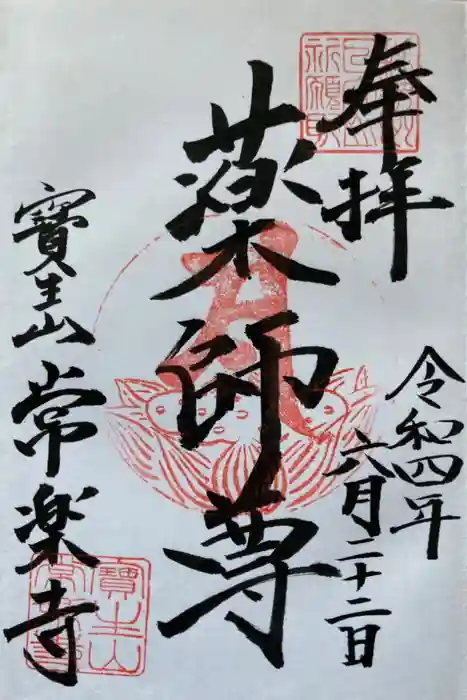 奉拝
令和四年
六月二十二日
薬師尊
寳生山
常楽寺
寳生山